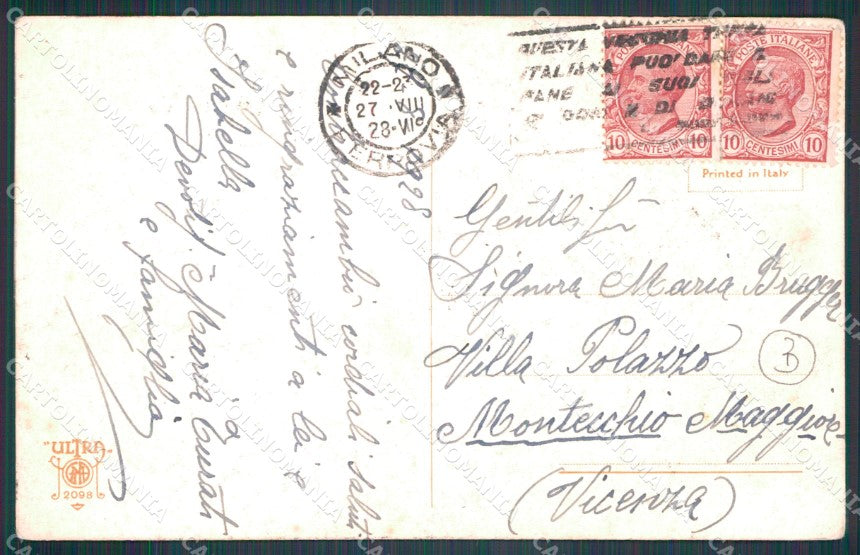 MILANO
22-23
27 VIII
28-VI°
FERROVIA
1928
QUESTA TIPICA
ITALIANA PUO' DARE A
PANE AI SUOI
POSTE ITALIANE
10 CENTESIMI 10
POSTE ITALIANE
10 CENTESIMI 10
Printed in Italy
Gentil.
Signora Maria Brugger
Villa Polazzo
Montecchio Maggiore
(Vicenza)
3
cordiali saluti
e ringraziamenti a lei e
Isabella
Devot. Maria
e famiglia
"ULTRA"
2098
CARTOLINOMANIA